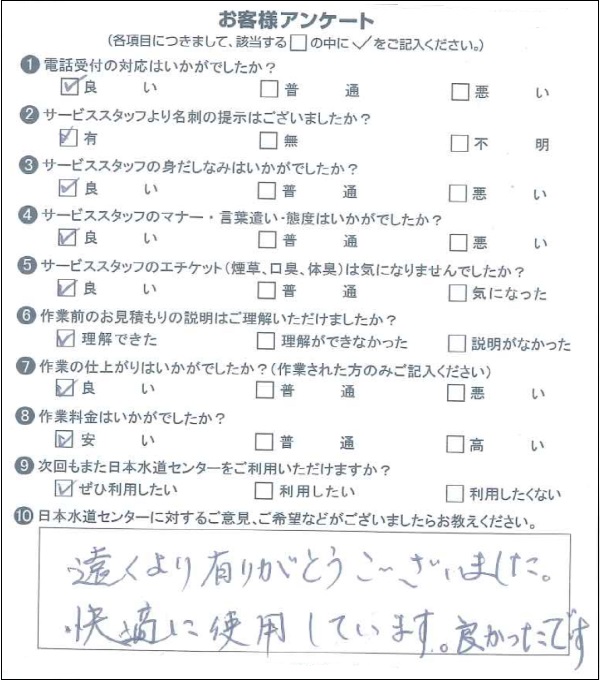 お客様アンケート
(各項目につきまして、該当する□の中に✓をご記入ください。)
❶電話受付の対応はいかがでしたか?
☑良い □普通 □悪い
❷サービススタッフより名刺の提示はございましたか?
☑有 □無 □不明
❸サービススタッフの身だしなみはいかがでしたか?
☑良い □普通 □悪い
❹サービススタッフのマナー・言葉遣い・態度はいかがでしたか?
☑良い □普通 □悪い
❺サービススタッフのエチケット(煙草、口臭、体臭)は気になりませんでしたか?
☑良い □普通 □気になった
❻作業前のお見積もりの説明はご理解いただけましたか?
☑理解できた □理解ができなかった □説明がなかった
❼作業の仕上がりはいかがでしたか?(作業された方のみご記入ください)
☑良い □普通 □悪い
❽作業料金はいかがでしたか?
☑安い □普通 □高い
❾次回もまた日本水道センターをご利用いただけますか?
☑ぜひ利用したい □利用したい □利用したくない
❿日本水道センターに対するご意見、ご希望などがございましたらお教えください。
遠くより有りがとうございました。
快適に使用しています。良かったです